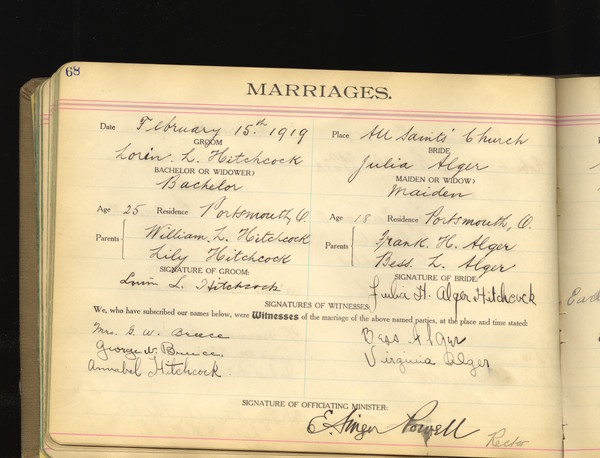 68
MARRIAGES.
Date February 15.th 1919 Place All Saints' Church
GROOM BRIDE
Lorin. L. Hitchcock Julia Alger
BACHELOR OR WIDOWER? MAIDEN OR WIDOW?
Bachelor Maiden
Age 25 Residence Portsmouth, O. Age 18 Residence Portsmouth, O.
Parents William. L. Hitchcock Parents Frank. H. Alger
Lily Hitchcock Bess. L. Alger
SIGNATURE OF GROOM: SIGNATURE OF BRIDE
Lorin L. Hitchcock Julia H. Alger Hitchcock
SIGNATURES OF WITNESSES.
We, who have subscribed our names below, were Witnesses of the marriage of the above named parties, at the place and time stated:
Mrs. G. W. Breece Bess Alger
George W. Breece. Virginia Alger
Annabel Hitchcock
SIGNATURE OF OFFICIATING MINISTER:
E. Ainger Powell
Rector